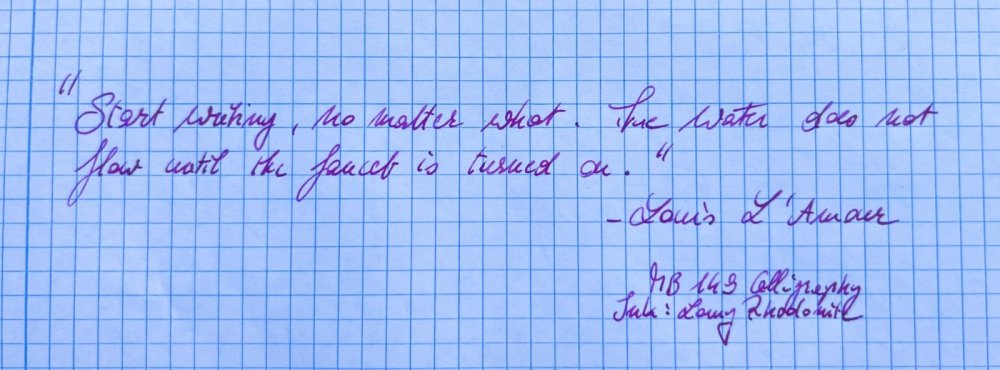 "Start writing, no matter what. The water does not
flow until the faucet is turned on."
- Louis L'Amour
MB 149 Calligraphy
Ink: Lamy Rhodonite